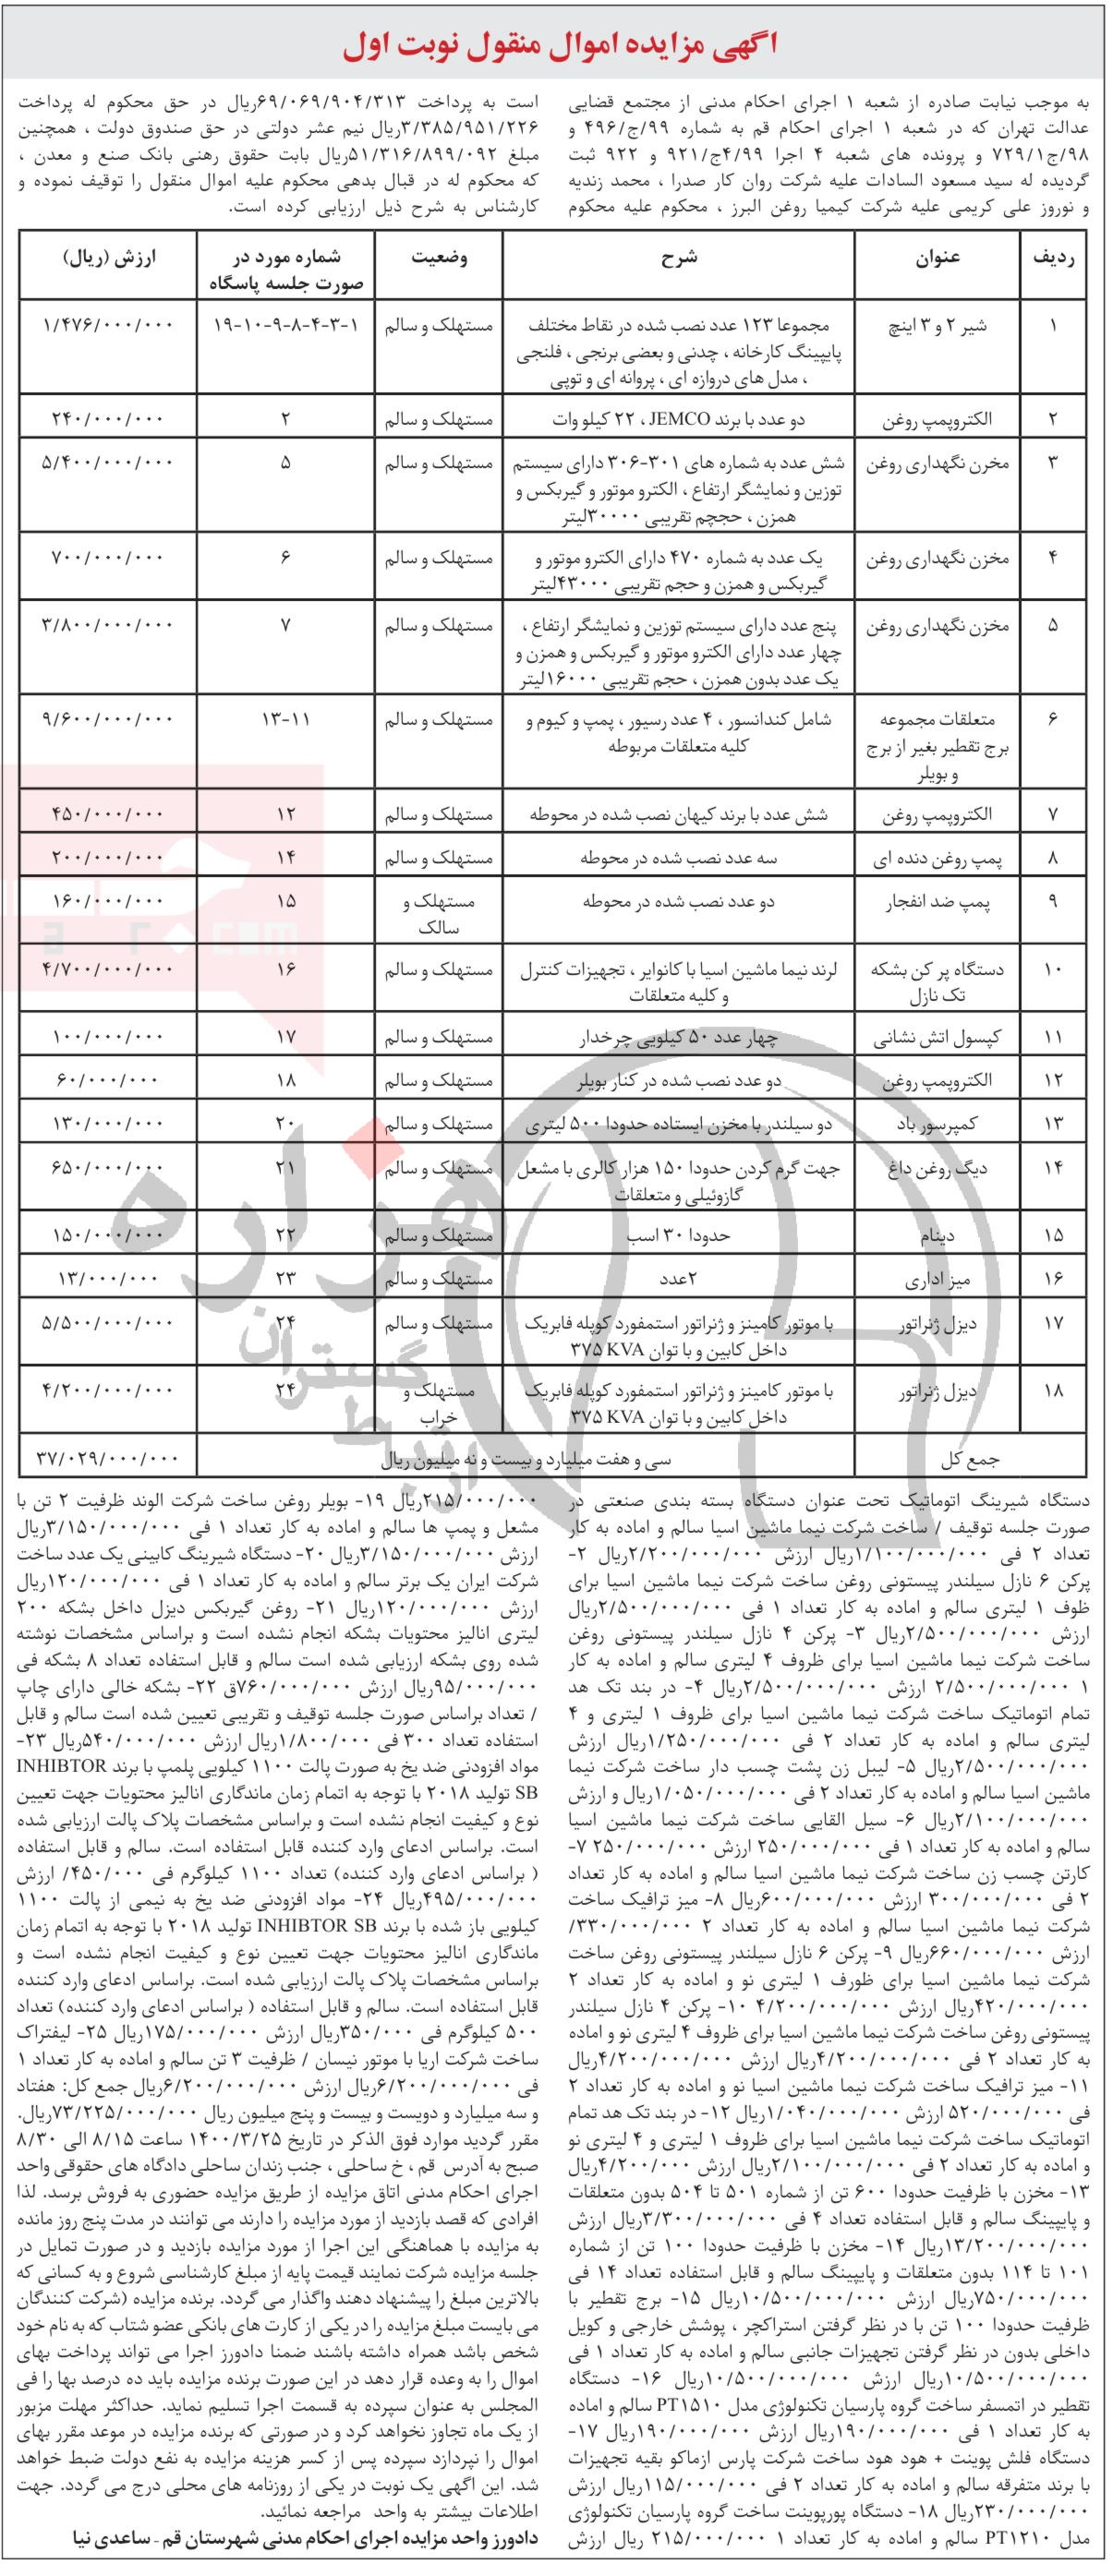 اگهی مزایده اموال منقول نوبت اول
به موجب نیابت صادره از شعبه ۱ اجرای احکام مدنی از مجتمع قضایی
عدالت تهران که در شعبه ۱ اجرای احکام قم به شماره ۹۹/ج/۴۹۶ و
۹۸/ج/۷۲۹/۱ و پرونده های شعبه ۴ اجرا ۴/۹۹ج/۹۲۱ و ۹۲۲ ثبت
گردیده له سید مسعود السادات علیه شرکت روان کار صدرا ، محمد زندیه
و نوروز علی کریمی علیه شرکت کیمیا روغن البرز ، محکوم علیه محکوم
است به پرداخت ۶۹/۰۶۹/۹۰۴/۳۱۳ریال در حق محکوم له پرداخت
۳/۳۸۵/۹۵۱/۲۲۶ریال نیم عشر دولتی در حق صندوق دولت ، همچنین
مبلغ ۵۱/۳۱۶/۸۹۹/۰۹۲ریال بابت حقوق رهنی بانک صنع و معدن ،
که محکوم له در قبال بدهی محکوم علیه اموال منقول را توقیف نموده و
کارشناس به شرح ذیل ارزیابی کرده است.
ردیف عنوان شرح وضعیت شماره مورد در صورت جلسه پاسگاه ارزش (ریال)
۱ شیر ۲ و ۳ اینچ مجموعا ۱۲۳ عدد نصب شده در نقاط مختلف مستهلک و سالم ۱-۳-۴-۸-۹-۱۰-۱۹ ۱/۴۷۶/۰۰۰/۰۰۰
پایپینگ کارخانه ، چدنی و بعضی برنجی ، فلنجی
، مدل های دروازه ای ، پروانه ای و توپی
۲ الکتروپمپ روغن دو عدد با برند JEMCO ، ۲۲ کیلو وات مستهلک و سالم ۲ ۲۴۰/۰۰۰/۰۰۰
۳ مخرن نگهداری روغن شش عدد به شماره های ۳۰۱-۳۰۶ دارای سیستم مستهلک و سالم ۵ ۵/۴۰۰/۰۰۰/۰۰۰
توزین و نمایشگر ارتفاع ، الکترو موتور و گیربکس و
همزن ، حججم تقریبی ۳۰۰۰۰لیتر
۴ مخزن نگهداری روغن یک عدد به شماره ۴۷۰ دارای الکترو موتور و مستهلک و سالم ۶ ۷۰۰/۰۰۰/۰۰۰
گیربکس و همزن و حجم تقریبی ۴۳۰۰۰لیتر
۵ مخزن نگهداری روغن پنج عدد دارای سیستم توزین و نمایشگر ارتفاع ، مستهلک و سالم ۷ ۳/۸۰۰/۰۰۰/۰۰۰
چهار عدد دارای الکترو موتور و گیربکس و همزن و
یک عدد بدون همزن ، حجم تقریبی ۱۶۰۰۰لیتر
۶ متعلقات مجموعه برج تقطیر بغیر از برج و بویلر شامل کندانسور ، ۴ عدد رسیور ، پمپ و کیوم و مستهلک و سالم ۱۱-۱۳ ۹/۶۰۰/۰۰۰/۰۰۰
کلیه متعلقات مربوطه
۷ الکتروپمپ روغن شش عدد با برند کیهان نصب شده در محوطه مستهلک و سالم ۱۲ ۴۵۰/۰۰۰/۰۰۰
۸ پمپ روغن دنده ای سه عدد نصب شده در محوطه مستهلک و سالم ۱۴ ۲۰۰/۰۰۰/۰۰۰
۹ پمپ ضد انفجار دو عدد نصب شده در محوطه مستهلک و سالک ۱۵ ۱۶۰/۰۰۰/۰۰۰
۱۰ دستگاه پر کن بشکه تک نازل لرند نیما ماشین اسیا با کانوایر ، تجهیزات کنترل مستهلک و سالم ۱۶ ۴/۷۰۰/۰۰۰/۰۰۰
و کلیه متعلقات
۱۱ کپسول اتش نشانی چهار عدد ۵۰ کیلویی چرخدار مستهلک و سالم ۱۷ ۱۰۰/۰۰۰/۰۰۰
۱۲ الکتروپمپ روغن دو عدد نصب شده در کنار بویلر مستهلک و سالم ۱۸ ۶۰/۰۰۰/۰۰۰
۱۳ کمپرسور باد دو سیلندر با مخزن ایستاده حدودا ۵۰۰ لیتری مستهلک و سالم ۲۰ ۱۳۰/۰۰۰/۰۰۰
۱۴ دیگ روغن داغ جهت گرم کردن حدودا ۱۵۰ هزار کالری با مشعل مستهلک و سالم ۲۱ ۶۵۰/۰۰۰/۰۰۰
گازوئیلی و متعلقات
۱۵ دینام حدودا ۳۰ اسب مستهلک و سالم ۲۲ ۱۵۰/۰۰۰/۰۰۰
۱۶ میز اداری ۲عدد مستهلک و سالم ۲۳ ۱۳/۰۰۰/۰۰۰
۱۷ دیزل ژنراتور با موتور کامینز و ژنراتور استمفورد کوپله فابریک مستهلک و سالم ۲۴ ۵/۵۰۰/۰۰۰/۰۰۰
داخل کابین و با توان ۳۷۵ KVA
۱۸ دیزل ژنراتور با موتور کامینز و ژنراتور استمفورد کوپله فابریک مستهلک و خراب ۲۴ ۴/۲۰۰/۰۰۰/۰۰۰
داخل کابین و با توان ۳۷۵ KVA
جمع کل سی و هفت میلیارد و بیست و نه میلیون ریال ۳۷/۰۲۹/۰۰۰/۰۰۰
دستگاه شیرینگ اتوماتیک تحت عنوان دستگاه بسته بندی صنعتی در
صورت جلسه توقیف / ساخت شرکت نیما ماشین اسیا سالم و اماده به کار
تعداد ۲ فی ۱/۱۰۰/۰۰۰/۰۰۰ریال ارزش ۲/۲۰۰/۰۰۰/۰۰۰ریال ۲-
پرکن ۶ نازل سیلندر پیستونی روغن ساخت شرکت نیما ماشین اسیا برای
ظوف ۱ لیتری سالم و اماده به کار تعداد ۱ فی ۲/۵۰۰/۰۰۰/۰۰۰ریال
ارزش ۲/۵۰۰/۰۰۰/۰۰۰ریال ۳- پرکن ۴ نازل سیلندر پیستونی روغن
ساخت شرکت نیما ماشین اسیا برای ظروف ۴ لیتری سالم و اماده به کار
۱ ۲/۵۰۰/۰۰۰/۰۰۰ ارزش ۲/۵۰۰/۰۰۰/۰۰۰ریال ۴- در بند تک هد
تمام اتوماتیک ساخت شرکت نیما ماشین اسیا برای ظروف ۱ لیتری و ۴
لیتری سالم و اماده به کار تعداد ۲ فی ۱/۲۵۰/۰۰۰/۰۰۰ریال ارزش
۲/۵۰۰/۰۰۰/۰۰۰ریال ۵- لیبل زن پشت چسب دار ساخت شرکت نیما
ماشین اسیا سالم و اماده به کار تعداد ۲ فی ۱/۰۵۰/۰۰۰/۰۰۰ریال و ارزش
۲/۱۰۰/۰۰۰/۰۰۰ریال ۶- سیل القایی ساخت شرکت نیما ماشین اسیا
سالم و اماده به کار تعداد ۱ فی ۲۵۰/۰۰۰/۰۰۰ ارزش ۲۵۰/۰۰۰/۰۰۰ ۷-
کارتن چسب زن ساخت شرکت نیما ماشین اسیا سالم و اماده به کار تعداد
۲ فی ۳۰۰/۰۰۰/۰۰۰ ارزش ۶۰۰/۰۰۰/۰۰۰ریال ۸- میز ترافیک ساخت
شرکت نیما ماشین اسیا سالم و اماده به کار تعداد ۲ ۳۳۰/۰۰۰/۰۰۰/
ارزش ۶۶۰/۰۰۰/۰۰۰ریال ۹- پرکن ۶ نازل سیلندر پیستونی روغن ساخت
شرکت نیما ماشین اسیا برای ظورف ۱ لیتری نو و اماده به کار تعداد ۲
۴۲۰/۰۰۰/۰۰۰ریال ارزش ۴/۲۰۰/۰۰۰/۰۰۰ ۱۰- پرکن ۴ نازل سیلندر
پیستونی روغن ساخت شرکت نیما ماشین اسیا برای ظروف ۴ لیتری نو و اماده
به کار تعداد ۲ فی ۴/۲۰۰/۰۰۰/۰۰۰ریال ارزش ۴/۲۰۰/۰۰۰/۰۰۰ریال
۱۱- میز ترافیک ساخت شرکت نیما ماشین اسیا نو و اماده به کار تعداد ۲
فی ۵۲۰/۰۰۰/۰۰۰ ارزش ۱/۰۴۰/۰۰۰/۰۰۰ریال ۱۲- در بند تک هد تمام
اتوماتیک ساخت شرکت نیما ماشین اسیا برای ظروف ۱ لیتری و ۴ لیتری نو
و اماده به کار تعداد ۲ فی ۲/۱۰۰/۰۰۰/۰۰۰ریال ارزش ۴/۲۰۰/۰۰۰ریال
۱۳- مخزن با ظرفیت حدودا ۶۰۰ تن از شماره ۵۰۱ تا ۵۰۴ بدون متعلقات
و پایپینگ سالم و قابل استفاده تعداد ۴ فی ۳/۳۰۰/۰۰۰/۰۰۰ریال ارزش
۱۳/۲۰۰/۰۰۰/۰۰۰ریال ۱۴- مخزن با ظرفیت حدودا ۱۰۰ تن از شماره
۱۰۱ تا ۱۱۴ بدون متعلقات و پایپینگ سالم و قابل استفاده تعداد ۱۴ فی
۷۵۰/۰۰۰/۰۰۰ریال ارزش ۱۰/۵۰۰/۰۰۰/۰۰۰ریال ۱۵- برج تقطیر با
ظرفیت حدودا ۱۰۰ تن با در نظر گرفتن استراکچر ، پوشش خارجی و کویل
داخلی بدون در نظر گرفتن تجهیزات جانبی سالم و اماده به کار تعداد ۱ فی
۱۰/۵۰۰/۰۰۰/۰۰۰ریال ارزش ۱۰/۵۰۰/۰۰۰/۰۰۰ریال ۱۶- دستگاه
تقطیر در اتمسفر ساخت گروه پارسیان تکنولوژی مدل PT۱۵۱۰ سالم و اماده
به کار تعداد ۱ فی ۱۹۰/۰۰۰/۰۰۰ریال ارزش ۱۹۰/۰۰۰/۰۰۰ریال ۱۷-
دستگاه فلش پوینت + هود هود ساخت شرکت پارس ازماکو بقیه تجهیزات
با برند متفرقه سالم و اماده به کار تعداد ۲ فی ۱۱۵/۰۰۰/۰۰۰ریال ارزش
۲۳۰/۰۰۰/۰۰۰ریال ۱۸- دستگاه پورپوینت ساخت گروه پارسیان تکنولوژی
مدل PT۱۲۱۰ سالم و اماده به کار تعداد ۱ ۲۱۵/۰۰۰/۰۰۰ ریال ارزش
۲۱۵/۰۰۰/۰۰۰ریال ۱۹- بویلر روغن ساخت شرکت الوند ظرفیت ۲ تن با
مشعل و پمپ ها سالم و اماده به کار تعداد ۱ فی ۳/۱۵۰/۰۰۰/۰۰۰ریال
ارزش ۳/۱۵۰/۰۰۰/۰۰۰ریال ۲۰- دستگاه شیرینگ کابینی یک عدد ساخت
شرکت ایران یک برتر سالم و اماده به کار تعداد ۱ فی ۱۲۰/۰۰۰/۰۰۰ریال
ارزش ۱۲۰/۰۰۰/۰۰۰ریال ۲۱- روغن گیربکس دیزل داخل بشکه ۲۰۰
لیتری انالیز محتویات بشکه انجام نشده است و براساس مشخصات نوشته
شده روی بشکه ارزیابی شده است سالم و قابل استفاده تعداد ۸ بشکه فی
۹۵/۰۰۰/۰۰۰ریال ارزش ۷۶۰/۰۰۰/۰۰۰ق ۲۲- بشکه خالی دارای چاپ
/ تعداد براساس صورت جلسه توقیف و تقریبی تعیین شده است سالم و قابل
استفاده تعداد ۳۰۰ فی ۱/۸۰۰/۰۰۰ریال ارزش ۵۴۰/۰۰۰/۰۰۰ریال ۲۳-
مواد افزودنی ضد یخ به صورت پالت ۱۱۰۰ کیلویی پلمپ با برند INHIBTOR
SB تولید ۲۰۱۸ با توجه به اتمام زمان ماندگاری انالیز محتویات جهت تعیین
نوع و کیفیت انجام نشده است و براساس مشخصات پلاک پالت ارزیابی شده
است. براساس ادعای وارد کننده قابل استفاده است. سالم و قابل استفاده
( براساس ادعای وارد کننده) تعداد ۱۱۰۰ کیلوگرم فی ۴۵۰/۰۰۰/ ارزش
۴۹۵/۰۰۰/۰۰۰ریال ۲۴- مواد افزودنی ضد یخ به نیمی از پالت ۱۱۰۰
کیلویی باز شده با برند INHIBTOR SB تولید ۲۰۱۸ با توجه به اتمام زمان
ماندگاری انالیز محتویات جهت تعیین نوع و کیفیت انجام نشده است و
براساس مشخصات پلاک پالت ارزیابی شده است. براساس ادعای وارد کننده
قابل استفاده است. سالم و قابل استفاده ( براساس ادعای وارد کننده) تعداد
۵۰۰ کیلوگرم فی ۳۵۰/۰۰۰ریال ارزش ۱۷۵/۰۰۰/۰۰۰ریال ۲۵- لیفتراک
ساخت شرکت اریا با موتور نیسان / ظرفیت ۳ تن سالم و اماده به کار تعداد ۱
فی ۶/۲۰۰/۰۰۰/۰۰۰ریال ارزش ۶/۲۰۰/۰۰۰/۰۰۰ریال جمع کل: هفتاد
و سه میلیارد و دویست و بیست و پنج میلیون ریال ۷۳/۲۲۵/۰۰۰/۰۰۰ریال.
مقرر گردید موارد فوق الذکر در تاریخ ۱۴۰۰/۳/۲۵ ساعت ۸/۱۵ الی ۸/۳۰
صبح به آدرس قم ، خ ساحلی ، جنب زندان ساحلی دادگاه های حقوقی واحد
اجرای احکام مدنی اتاق مزایده از طریق مزایده حضوری به فروش برسد. لذا
افرادی که قصد بازدید از مورد مزایده را دارند می توانند در مدت پنج روز مانده
به مزایده با هماهنگی این اجرا از مورد مزایده بازدید و در صورت تمایل در
جلسه مزایده شرکت نمایند قیمت پایه از مبلغ کارشناسی شروع و به کسانی که
بالاترین مبلغ را پیشنهاد دهند واگذار می گردد. برنده مزایده (شرکت کنندگان
می بایست مبلغ مزایده را در یکی از کارت های بانکی عضو شتاب که به نام خود
شخص باشد همراه داشته باشند ضمنا دادورز اجرا می تواند پرداخت بهای
اموال را به وعده قرار دهد در این صورت برنده مزایده باید ده درصد بها را فی
المجلس به عنوان سپرده به قسمت اجرا تسلیم نماید. حداکثر مهلت مزبور
از یک ماه تجاوز نخواهد کرد و در صورتی که برنده مزایده در موعد مقرر بهای
اموال را نپردازد سپرده پس از کسر هزینه مزایده به نفع دولت ضبط خواهد
شد. این اگهی یک نوبت در یکی از روزنامه های محلی درج می گردد. جهت
اطلاعات بیشتر به واحد مراجعه نمائید.
دادورز واحد مزایده اجرای احکام مدنی شهرستان قم - ساعدی نیا
هزاره
گستران
ارتباط